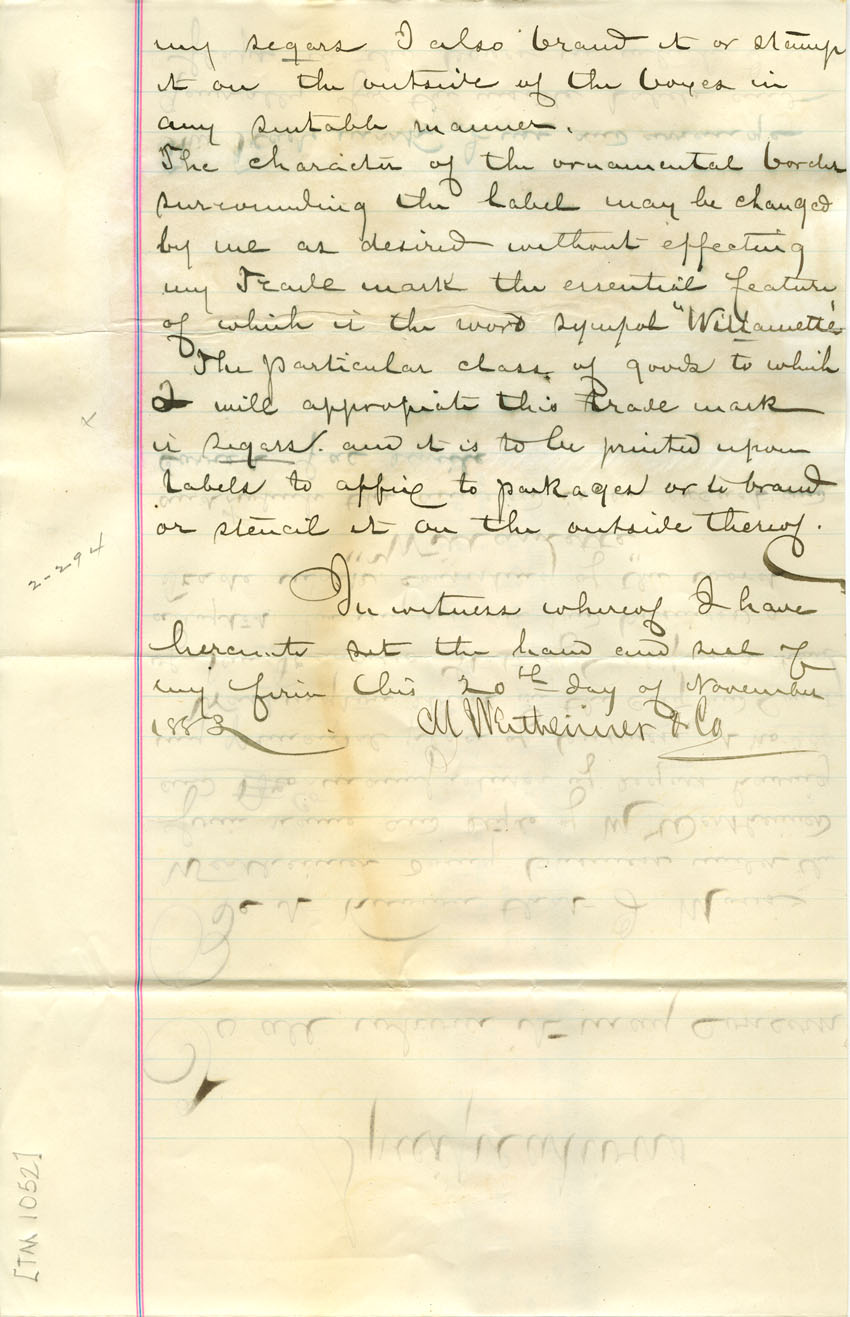 my segars I also brand it or stamp
it on the outside of the boxes in
any suitable manner.
The character of the ornamental border
surrounding the label may be changed
by me as desired without effecting
my Trade mark the essential feature
of which is the word sympol "Willamette"
The particular class of goods to which
I will appropiate this trade mark
is segars. and it is to be printed upon
labels to affix to packages or to brand
or stencil it on the outside thereof.
In witness whereof I have
hereunto set the hand and seal of
my firm this 20th day of November
1883 M Wertheimer & Co
x
2-294
[TM 1052]
Specifications
To all whom it may Concern
Be it known that I
Wertheimer doing business under the
firm name and style of M Wertheimer